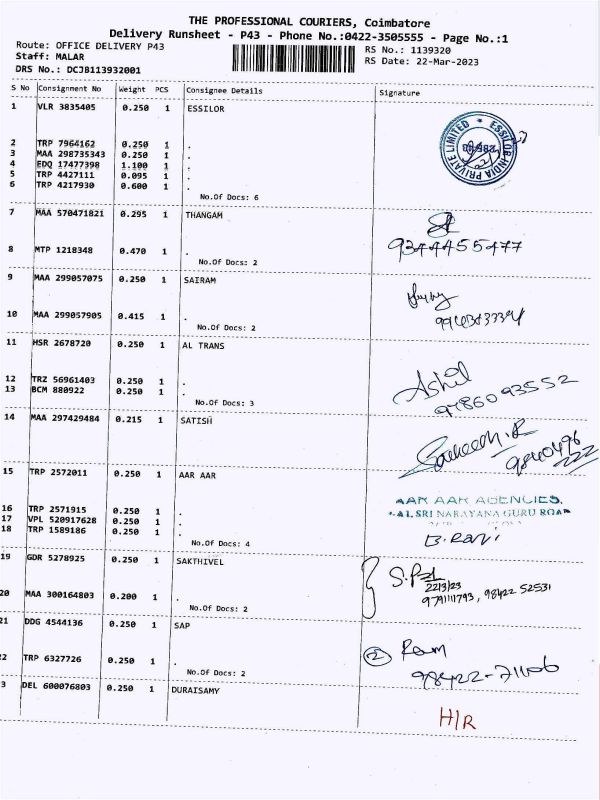 THE PROFESSIONAL COURIERS, Coimbatore
Delivery Runsheet - P43 - Phone No.:0422-3505555 - Page No.:1
Route: OFFICE DELIVERY P43
Staff: MALAR
DRS No.: DCJB113932001
RS No.: 1139320
RS Date: 22-Mar-2023
S No Consignment No Weight PCS Consignee Details Signature
1 VLR 3835405 0.250 1 ESSILOR
ESSILOR INDIA PRIVATE LIMITED
2 TRP 7964162 0.250 1 .
3 MAA 298735343 0.250 1 .
4 EDQ 17477398 1.100 1 .
5 TRP 4427111 0.095 1 .
6 TRP 4217930 0.600 1 .
No.Of Docs: 6
7 MAA 570471821 0.295 1 THANGAM
8 MTP 1218348 0.470 1 . 9344455477
No.Of Docs: 2
9 MAA 299057075 0.250 1 SAIRAM
10 MAA 299057905 0.415 1 .
No.Of Docs: 2
11 HSR 2678720 0.250 1 AL TRANS
12 TRZ 56961403 0.250 1 . Ashil
13 BCM 880922 0.250 1 . 9786093552
No.Of Docs: 3
14 MAA 297429484 0.215 1 SATISH
9840496
222
15 TRP 2572011 0.250 1 AAR AAR
AAR AAR AGENCIES,
SRI NARAYANA GURU ROAD
16 TRP 2571915 0.250 1 .
17 VPL 520917628 0.250 1 .
18 TRP 1589186 0.250 1 .
No.Of Docs: 4
B. Rani
19 GDR 5278925 0.250 1 SAKTHIVEL
22/3/23
9791111793, 98422 52531
20 MAA 300164803 0.200 1 .
No.Of Docs: 2
21 DDG 4544136 0.250 1 SAP
2 Ram
2 TRP 6327726 0.250 1 .
98422-71106
No.Of Docs: 2
3 DEL 600076803 0.250 1 DURAISAMY
H/R